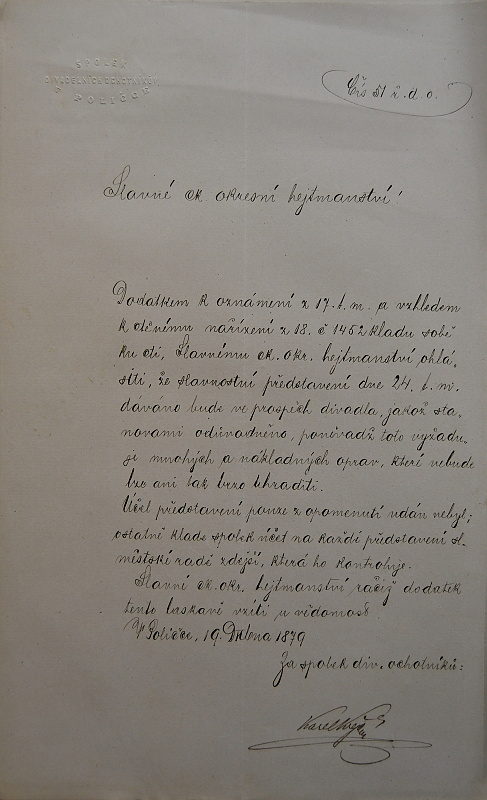 SPOLEK
DIVADELNÍCH OCHOTNÍKŮ
V POLIČCE
Čís 51 ř. d. o.
Slavné ck. okresní hejtmanství!
Dodatkem k oznámení z 17. t. m. a vzhledem
k ctěnému nařízení z 18. č 1452 kladu sobě
ku cti, Slavnému ck. okr. hejtmanství ohlá-
siti, že slavnostní představení dne 24. t. m.
dáváno bude ve prospěch divadla, jakož sta-
novami odůvodněno, poněvadž toto vyžadu-
je mnohých a nákladných oprav, které nebude
lze ani tak brzo uhraditi.
Účel představení pouze z opomenutí udán nebyl;
ostatně klade spolek účet na každé představení sl.
městské radě zdejší, která ho kontroluje.
Slavné ck. okr. hejtmanství račiž dodatek
tento laskavě vzíti u vědomost
V Poličce, 19. Dubna 1879
Za spolek div. ochotníků:
Karel